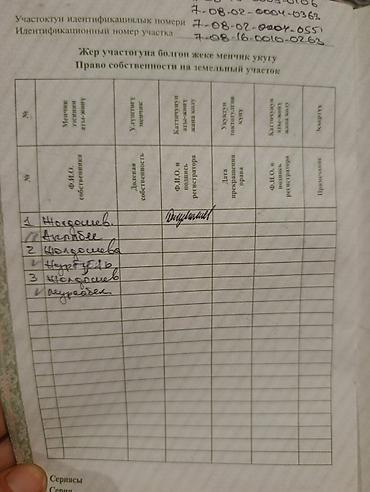 Участоктун идентификациялык номери 7-08-02-0004-0363
Идентификационный номер участка 7-08-02-0004-0551
7-08-16-0010-0263
Жер участогуна болгон жеке менчик укугу
Право собственности на земельный участок
№
Менчик ээсинин аты-жөнү
Үлүштүү менчик
Каттоочунун аты-жөнү жана колу
Укуктун токтотулган күнү
Каттоочунун аты-жөнү жана колу
Эскертүү
№
Ф.И.О. собственника
Долевая собственность
Ф.И.О. и подпись регистратора
Дата прекращения права
Ф.И.О. и подпись регистратора
Примечание
1 Жолдошев.
2 Жолдошева
3 Жолдошев
Сериясы
Серия